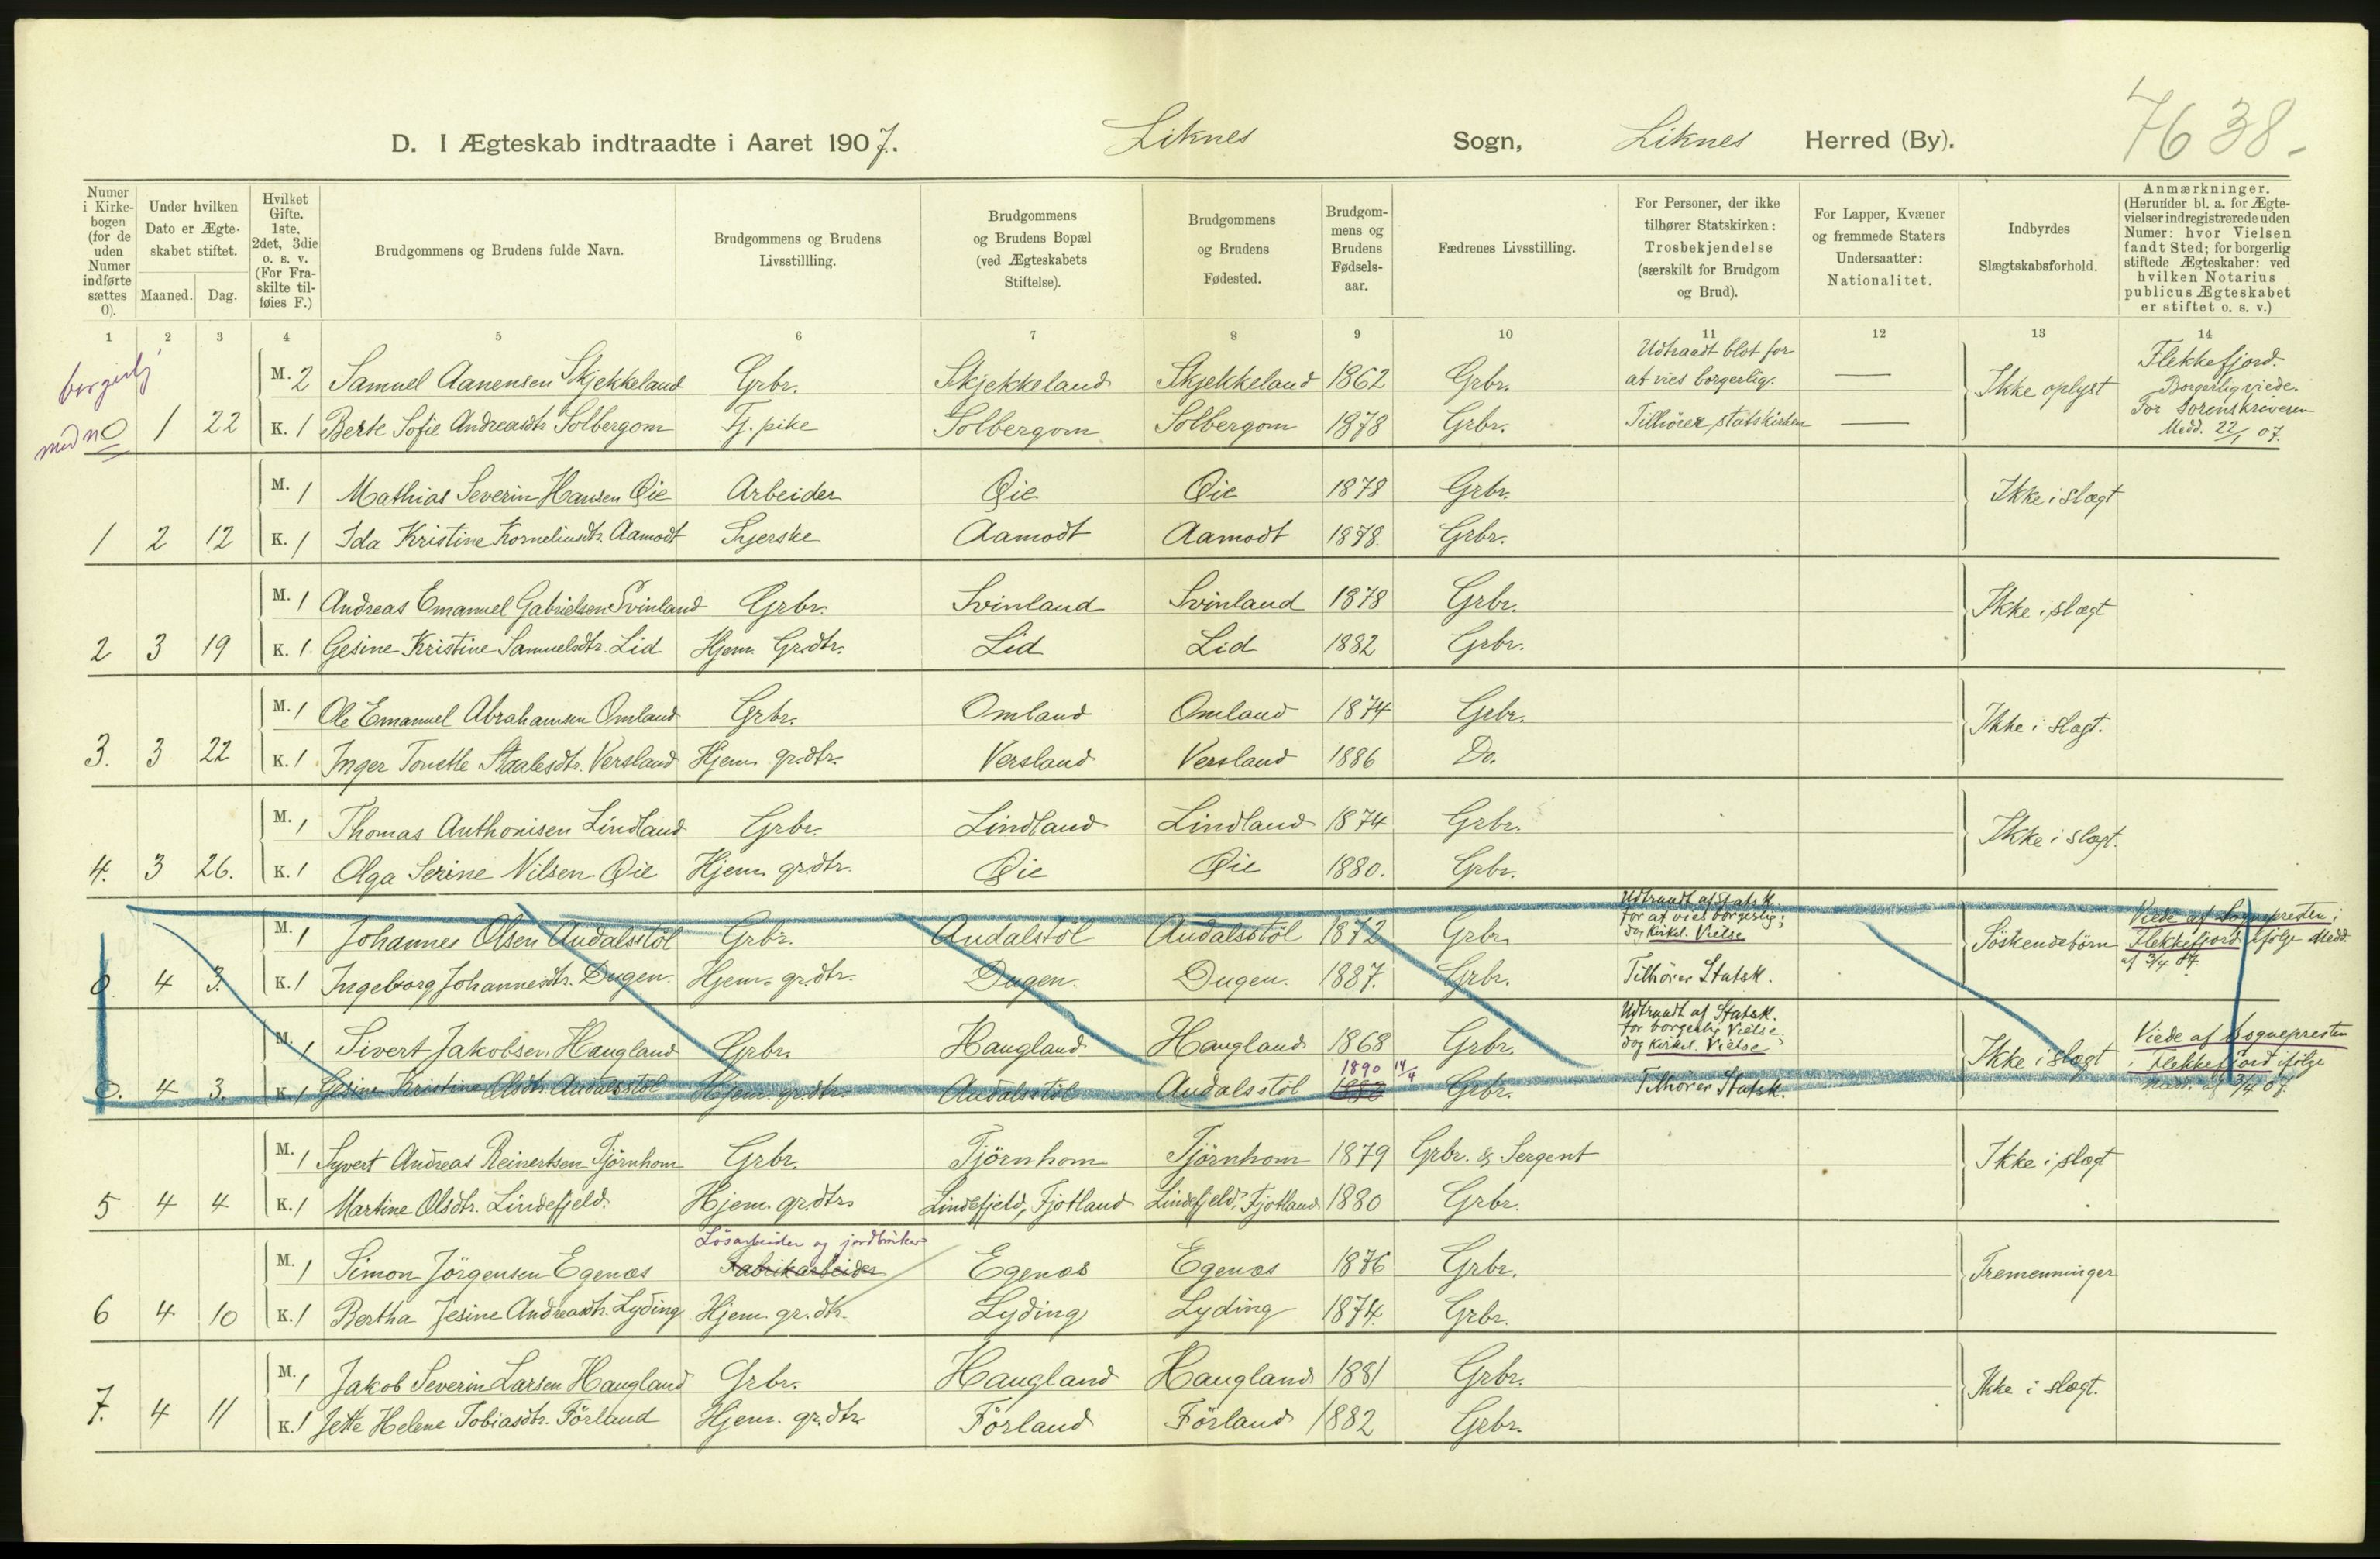 D. I Ægteskab indtraadte i Aaret 1907. Liknes Sogn, Liknes Herred (By). 7638.
Numer i Kirke-bogen (for de uden Numer indførte sættes 0).
Under hvilken Dato er Ægte-skabet stiftet.
Maaned. Dag.
Hvilket Gifte. 1ste, 2det, 3die o. s. v. (For Fra-skilte til-føies F.)
Brudgommens og Brudens fulde Navn.
Brudgommens og Brudens Livsstillling.
Brudgommens og Brudens Bopæl (ved Ægteskabets Stiftelse).
Brudgommens og Brudens Fødested.
Brudgom-mens og Brudens Fødsels-aar.
Fædrenes Livsstilling.
For Personer, der ikke tilhører Statskirken: Trosbekjendelse (særskilt for Brudgom og Brud).
For Lapper, Kvæner og fremmede Staters Undersaatter: Nationalitet.
Indbyrdes Slægtskabsforhold.
Anmærkninger. (Herunder bl. a. for Ægte-vielser indregistrerede uden Numer: hvor Vielsen fandt Sted; for borgerlig stiftede Ægteskaber: ved hvilken Notarius publicus Ægteskabet er stiftet o. s. v.)
1 2 3 4 5 6 7 8 9 10 11 12 13 14
borgerlig
M. 2 Samuel Aanensen Skjekkeland Grbr. Skjekkeland Skjekkeland 1862 Grbr. Udtraadt blot for at vies borgerlig. — Ikke oplyst Flekkefjord. Borgerlig viede. For Sorenskriveren Medd. 22/1 07.
med n 0 1 22 K. 1 Berte Sofie Andreasdtr Solbergom Tj. pike Solbergom Solbergom 1878 Grbr. Tilhører statskirken —
M. 1 Mathias Severin Hansen Øie Arbeider Øie Øie 1878 Grbr. Ikke i slægt
1 2 12 K. 1 Ida Kristine Korneliusdtr. Aamodt Syerske Aamodt Aamodt 1878. Grbr.
M. 1 Andreas Emanuel Gabrielsen Svinland Grbr. Svinland Svinland 1878 Grbr. Ikke i slægt
2 3 19 K. 1 Gesine Kristine Samuelsdtr. Lid Hjem. Gr.dtr. Lid Lid 1882 Grbr.
M. 1 Ole Emanuel Abrahamsen Omland Grbr. Omland Omland 1874 Grbr. Ikke i slægt.
3. 3 22 K. 1 Inger Tonette Staalesdtr. Versland Hjem. gr.dtr. Versland Versland 1886 Do.
M. 1 Thomas Anthonisen Lindland Grbr. Lindland Lindland 1874 Grbr. Ikke i slægt.
4. 3 26. K. 1 Olga Serine Nilsen Øie Hjem. gr.dtr. Øie Øie 1880. Grbr.
M. 1 Johannes Olsen Andalsstöl Grbr. Andalstöl Andalsstöl 1872 Grbr. Udtraadt af Statsk. for at vies borgerlig; dog kirkel. Vielse Söskendebörn Viede af Sognepresten i Flekkefjord ifölge Medd. af 3/4 07.
0. 4 3. K. 1 Ingeborg Johannesdtr. Dugen. Hjem. gr.dtr. Dugen. Dugen. 1887. Grbr. Tilhörer Statsk.
M. 1 Sivert Jakobsen Haugland Grbr. Haugland Haugland 1868 Grbr. Udtraadt af Statsk. for borgerlig Vielse; dog kirkel. Vielse Ikke i slægt Viede af Sognepresten Flekkefjord ifölge Medd. af 3/4 07.
1890 14/4
0. 4 3. K. 1 Gesine Kristine Olsdtr. Andalsstöl Hjem. gr.dtr. Andalsstöl Andalsstöl Grbr. Tilhörer Statsk.
M. 1 Syvert Andreas Reinertsen Tjörnhom Grbr. Tjörnhom Tjörnhom 1879 Grbr. & Sergent Ikke i slægt
5 4 4 K. 1 Martine Olsdtr. Lindefjeld. Hjem. gr.dtr. Lindefjeld, Fjotland Lindefjeld, Fjotland 1880 Grbr.
Lösarbeider og jordbruker
M. 1 Simon Jörgensen Egenæs Fabrikarbeider Egenæs Egenæs 1876 Grbr. Tremenninger
6 4 10 K. 1 Bertha Jesine Andreasdtr. Lyding Hjem. gr. dtr. Lyding Lyding 1874. Grbr.
M. 1 Jakob Severin Larsen Haugland Grbr. Haugland Haugland 1881 Grbr. Ikke i slægt.
7. 4 11 K. 1 Jette Helene Tobiasdtr. Förland Hjem. gr.dtr. Förland Förland 1882 Grbr.